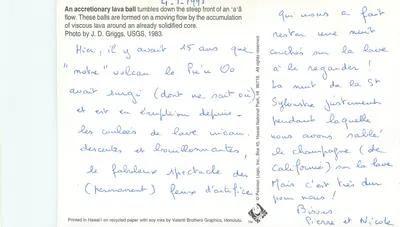 4-1-1998
An accretionary lava ball tumbles down the steep front of an 'a'ā
flow. These balls are formed on a moving flow by the accumulation
of viscous lava around an already solidified core.
Photo by J. D. Griggs, USGS, 1983.
Hier, il y avait 15 ans que
"notre" volcan le Pu'u Oo
avait surgi (dont ne sait où)
et est en éruption depuis.
les coulées de lave incan-
descentes et bouillonnantes,
le fabuleux spectacle des
(permanent) feux d'artifice
Printed in Hawai'i on recycled paper with soy inks by Valenti Brothers Graphics, Honolulu.
© Pearson Logic, Inc., Box 45, Hawaii National Park, HI 96718. All rights reserved.
qui nous a fait
rester une nuit
couchés sur la lave
à le regarder !
La nuit de la St
Sylvestre justement
pendant laquelle
nous avons sablé
le champagne (de
Californie) sur la lave
Mais c'est très dur
pour nous !
Bises
Pierre et Nicole